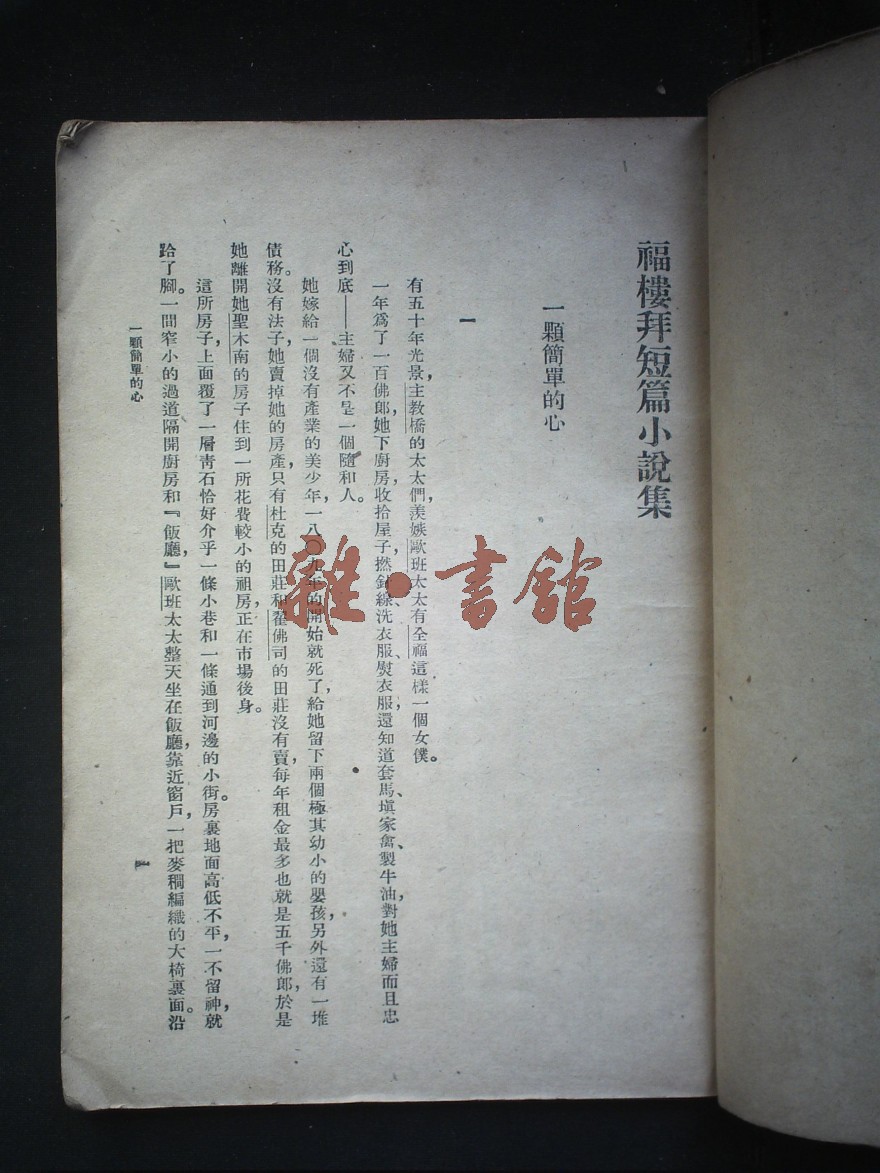 福樓拜短篇小說集
一顆簡單的心
一
有五十年光景,主教橋的太太們,羨嫉歐班太太有全福這樣一個女僕。
一年爲了一百佛郎,她下廚房,收拾屋子,撚針線、洗衣服、熨衣服,還知道套馬、塡家禽、製牛油,對她主婦而且忠
心到底——主婦又不是一個隨和人。
她嫁給一個沒有產業的美少年,一八〇九年的開始就死了,給她留下兩個極其幼小的嬰孩,另外還有一堆
債務。沒有法子,她賣掉她的房產,只有杜克的田莊和翟佛司的田莊沒有賣,每年租金最多也就是五千佛郎,於是
她離開她聖木南的房子,住到一所花費較小的祖房,正在市場後身。
這所房子,上面覆了一層靑石,恰好介乎一條小巷和一條通到河邊的小街。房裏地面高低不平,一不留神,就
跲了腳。一間窄小的過道隔開廚房和『飯廳,』歐班太太整天坐在飯廳,靠近窗戶,一把麥稠編織的大椅裏面。沿
一顆簡單的心
一
雜·書館